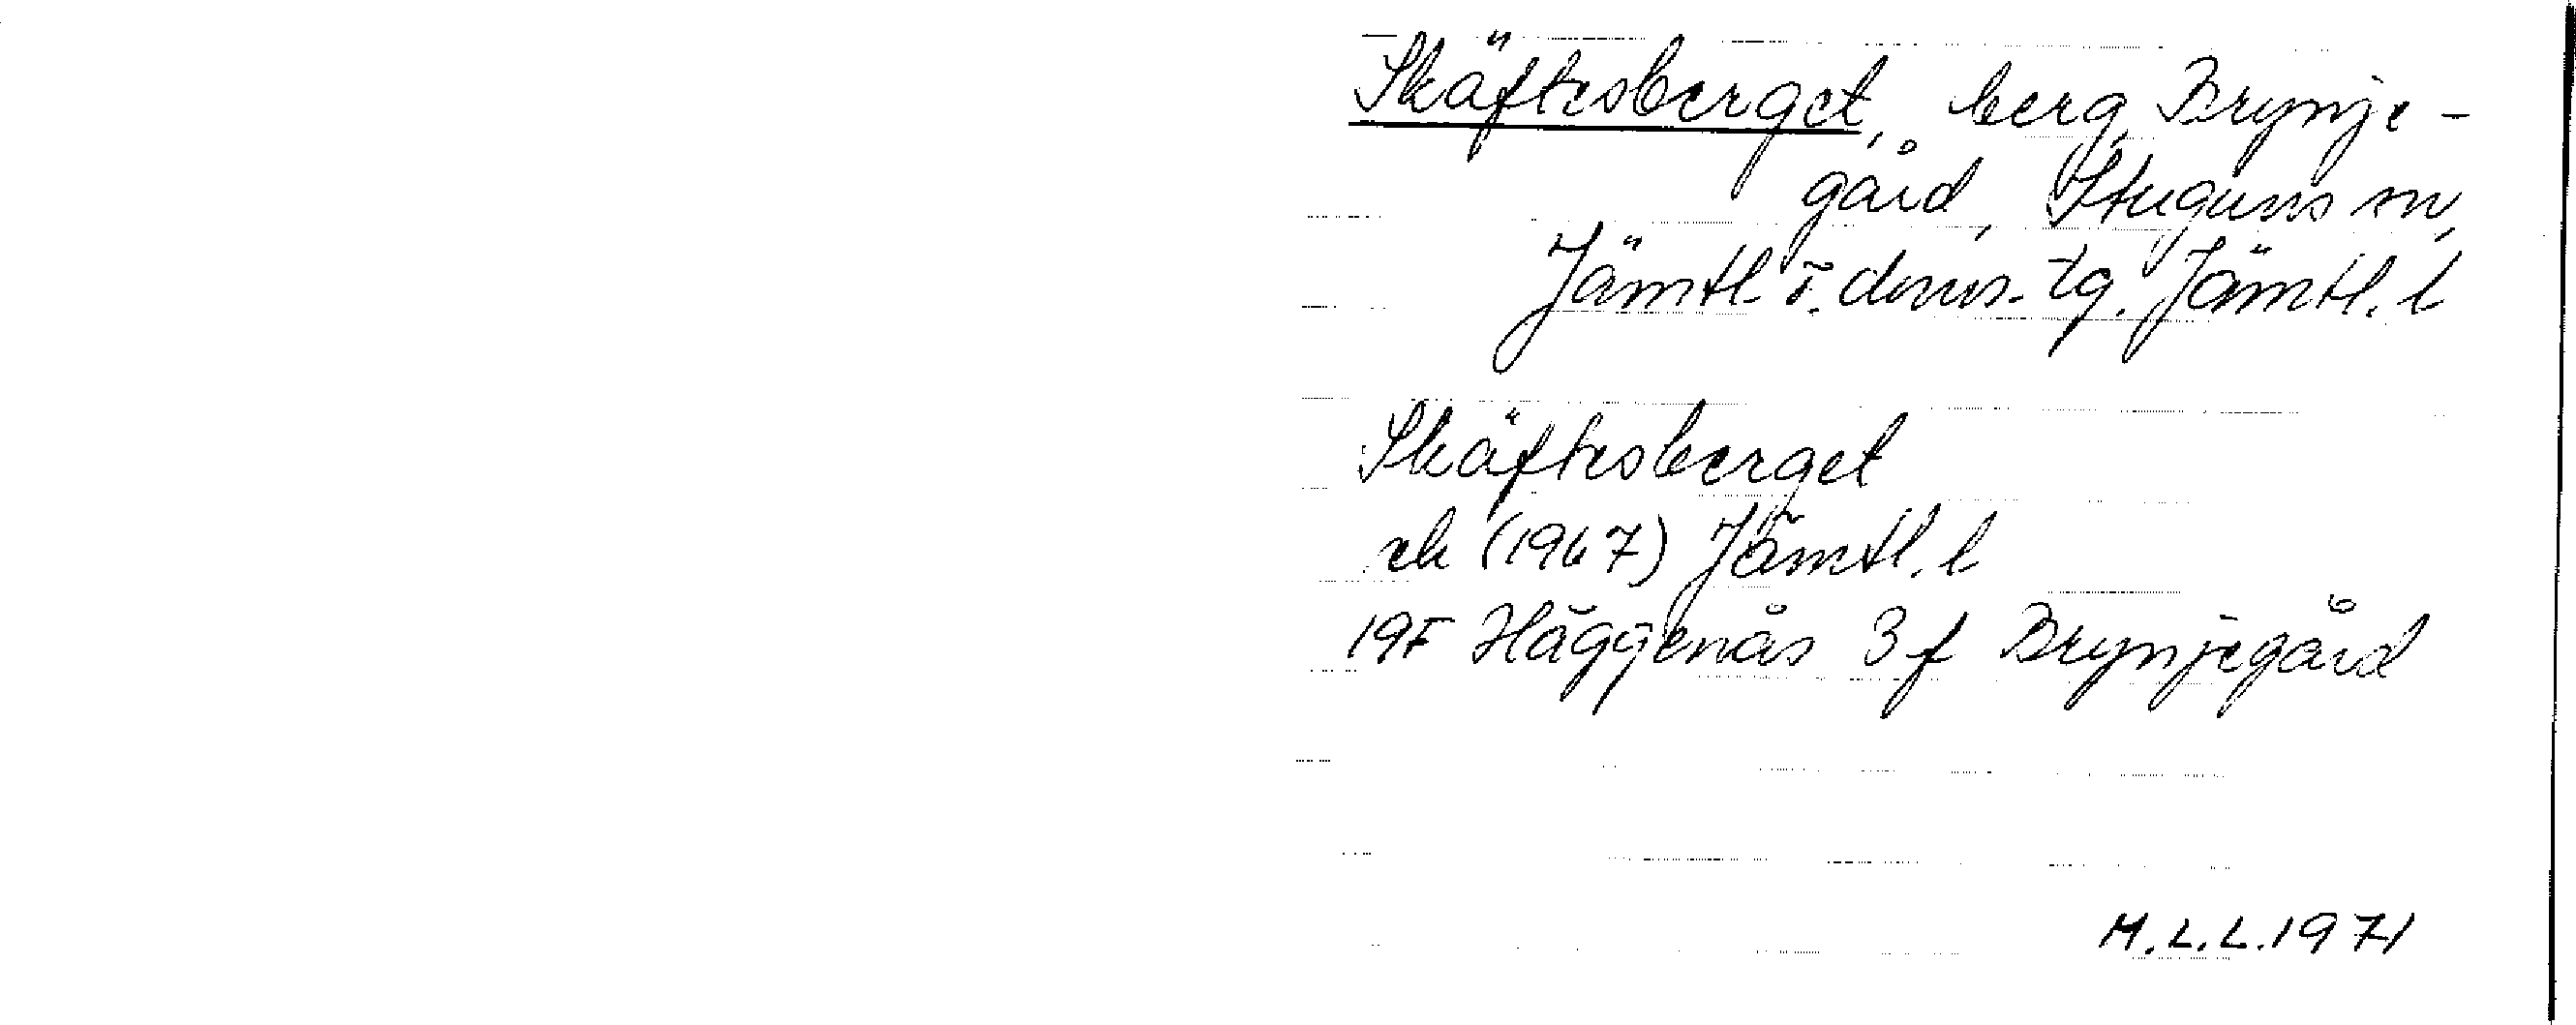 Skäftesberget, berg, Brynje-
gård, Stuguns sn,
Jämtl. ö. doms. tg. Jämtl. l
Skäftesberget
ek (1967) Jämtl. l
19F Häggenås 3f Brynjegård
M.L.L. 1971